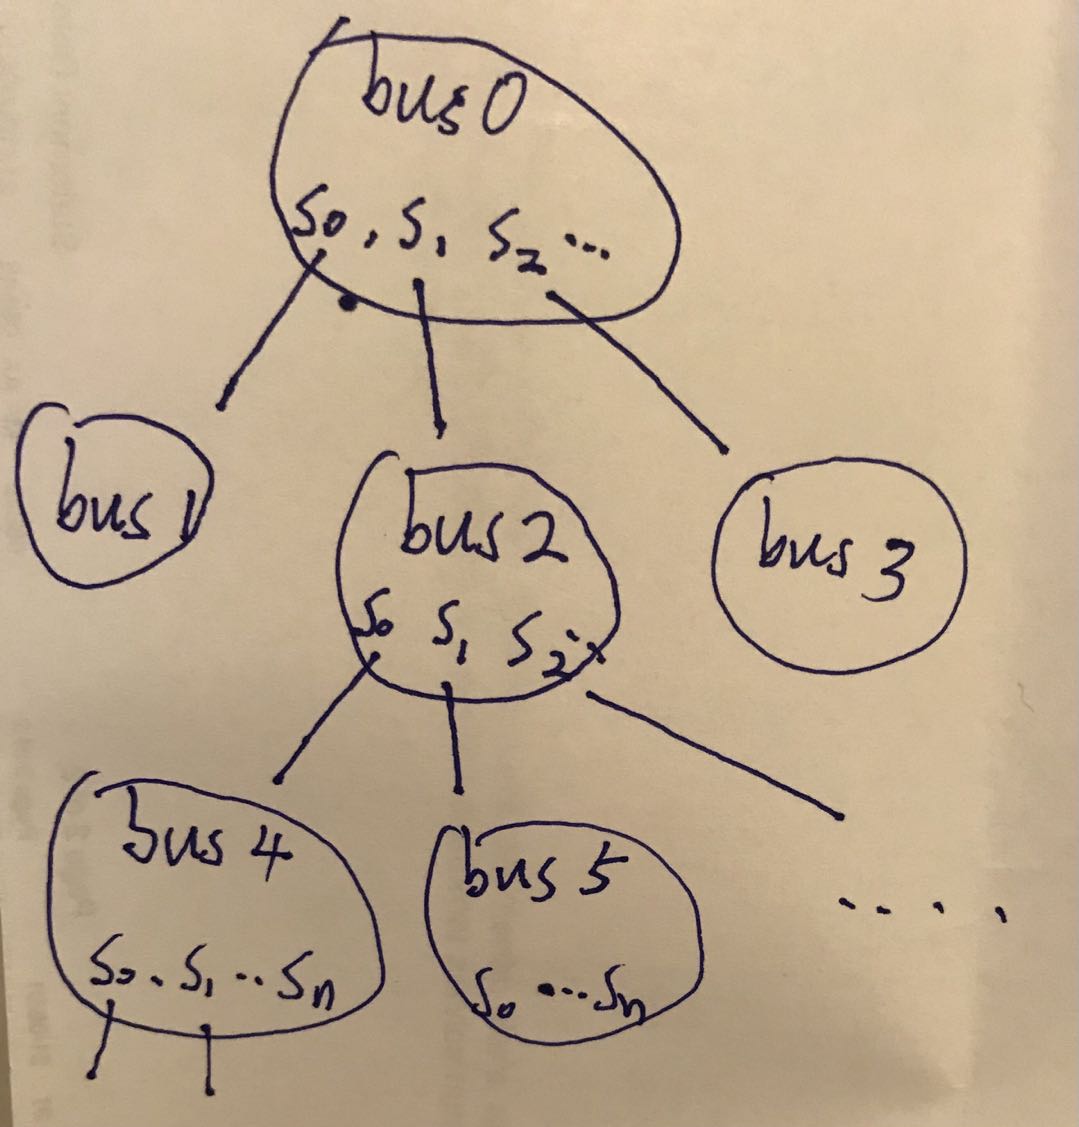 bus 0
S0, S1 S2 ...
bus 1
bus 2
S0 S1 S2 ..
bus 3
bus 4
S0. S1 .. Sn
bus 5
S0 ... Sn
....